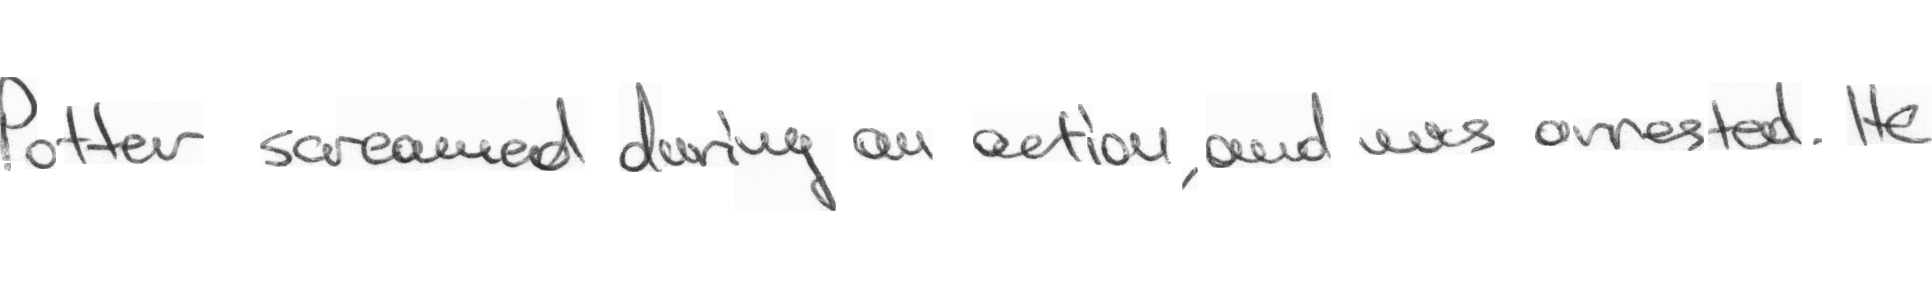 Potter screamed during an action, and was arrested. He